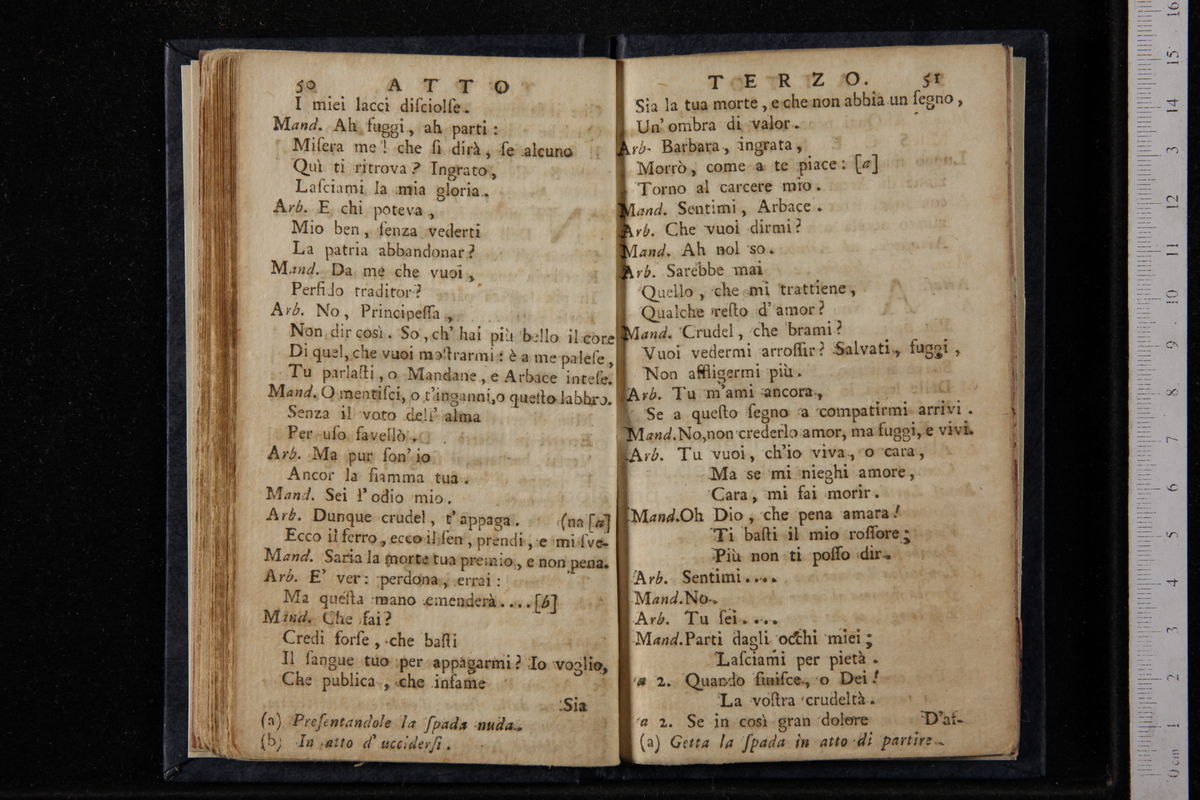 50 ATTO
I miei lacci diſciolſe.
Mand. Ah fuggi, ah parti:
Miſera me! che ſi dirà, ſe alcuno
Quì ti ritrova? Ingrato,
Laſciami la mia gloria.
Arb. E chi poteva,
Mio ben, ſenza vederti
La patria abbandonar?
Mand. Da me che vuoi,
Perfido traditor?
Arb. No, Principeſſa,
Non dir così. So, ch' hai più bello il core
Di quel, che vuoi moſtrarmi: è a me paleſe,
Tu parlaſti, o Mandane, e Arbace inteſe.
Mand. O mentiſci, o t'inganni, o queſto labbro.
Senza il voto dell' alma
Per uſo favellò.
Arb. Ma pur ſon' io
Ancor la fiamma tua.
Mand. Sei l' odio mio.
Arb. Dunque crudel, t' appaga. (na [a]
Ecco il ferro, ecco il ſen, prendi, e mi ſve-
Mand. Saria la morte tua premio, e non pena.
Arb. E' ver: perdona, errai:
Ma queſta mano emenderà.... [b]
Mand. Che fai?
Credi forſe, che baſti
Il ſangue tuo per appagarmi? Io voglio,
Che publica, che infame
Sia
(a) Preſentandole la ſpada nuda.
(b) In atto d' ucciderſi.
TERZO. 51
Sia la tua morte, e che non abbia un ſegno,
Un' ombra di valor.
Arb. Barbara, ingrata,
Morrò, come a te piace: [a]
Torno al carcere mio.
Mand. Sentimi, Arbace.
Arb. Che vuoi dirmi?
Mand. Ah nol so.
Arb. Sarebbe mai
Quello, che mi trattiene,
Qualche reſto d' amor?
Mand. Crudel, che brami?
Vuoi vedermi arroſſir? Salvati, fuggi,
Non affligermi più.
Arb. Tu m'ami ancora,
Se a queſto ſegno a compatirmi arrivi.
Mand. No, non crederlo amor, ma fuggi, e vivi.
Arb. Tu vuoi, ch'io viva, o cara,
Ma se mi nieghi amore,
Cara, mi fai morir.
Mand. Oh Dio, che pena amara!
Ti baſti il mio roſſore;
Più non ti poſſo dir.
Arb. Sentimi....
Mand. No.
Arb. Tu ſei....
Mand. Parti dagli occhi miei;
Laſciami per pietà.
a 2. Quando finiſce, o Dei!
La voſtra crudeltà.
a 2. Se in così gran dolore D'af-
(a) Getta la ſpada in atto di partire.